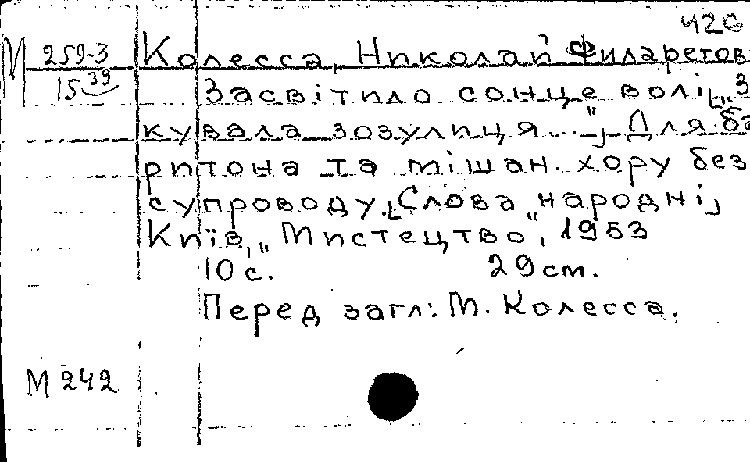 420
М 259-3
15 39
Колесса, Николай Филаретов
Засвітило сонце волі [„З
кувала зозулиця ..."] Для ба
ритона та мішан. хору без
супроводу. [Слова народні]
Київ, „Мистецтво", 1953
10 с. 29 см.
Перед загл: М. Колесса.
М 242